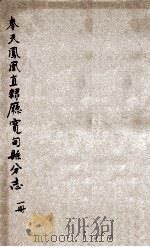 奉天鳳凰直隸廳寬甸縣分志 一冊
mtoou.info